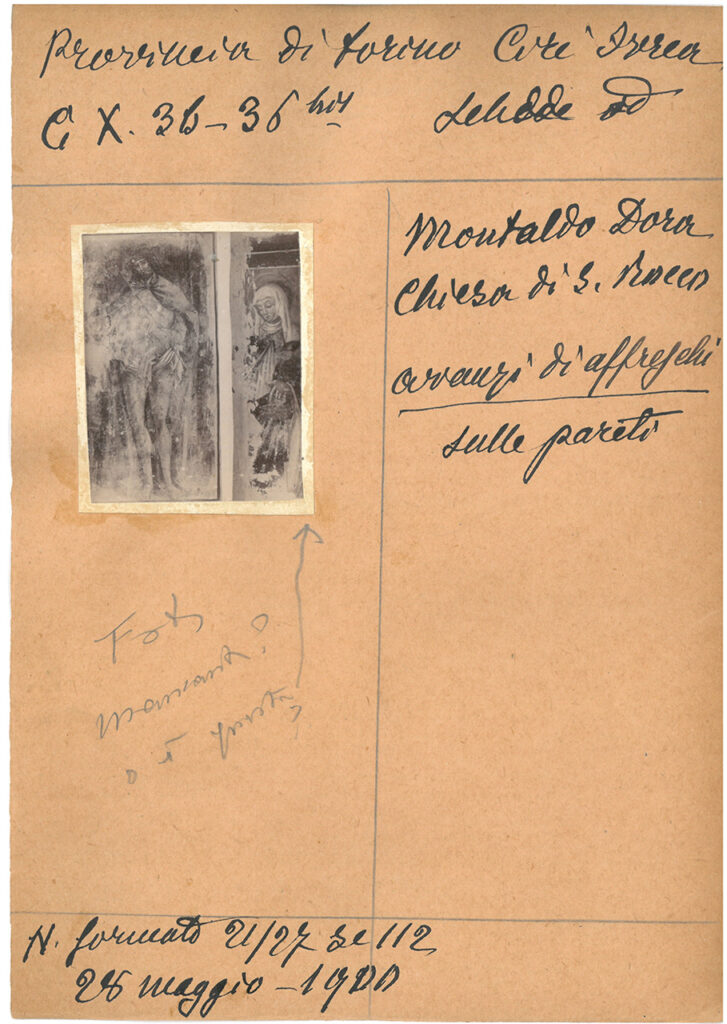 Provincia di Torino Ciri Ivrea
C X. 36 - 36 bis schede
Montaldo Dora
Chiesa di S. Rocco
avanzi di affreschi
sulle pareti
Foto
mancante
o è questa
N. formato 21/27 112
28 maggio - 1900